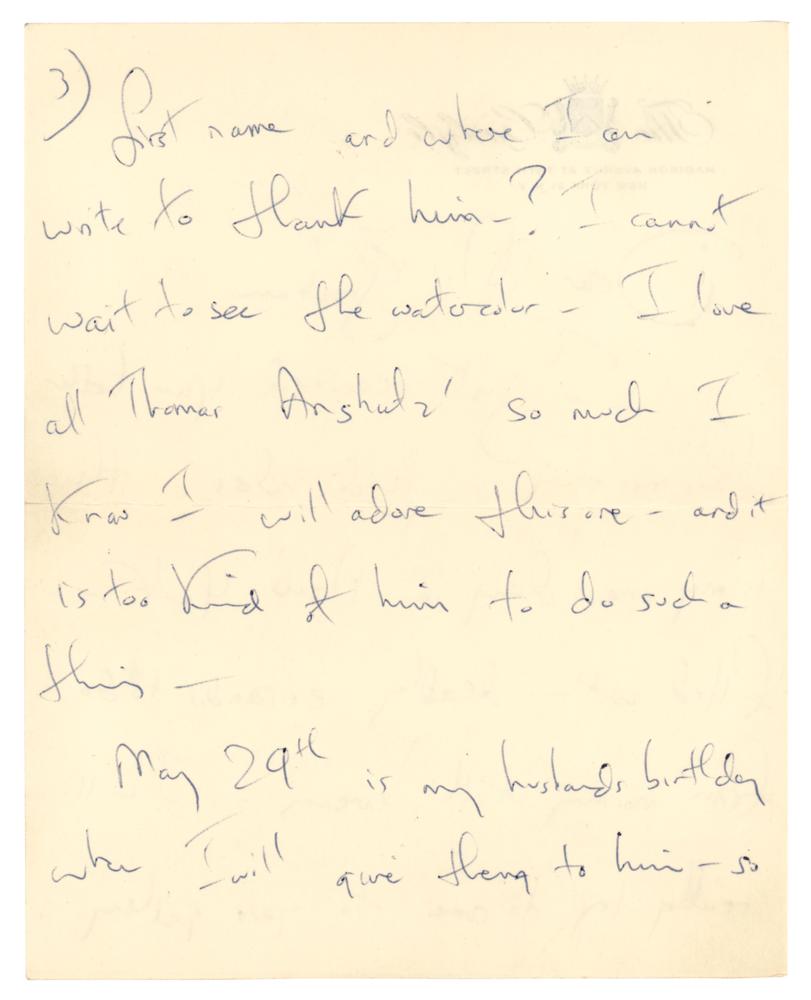 3) first name and where I can
write to thank him—? I cannot
wait to see the watercolor – I love
all Thomas Anshutz' so much I
Know I will adore this one – and it
is too Kind of him to do such a
thing —
May 29th is my husbands birthday
when I will give them to him – so